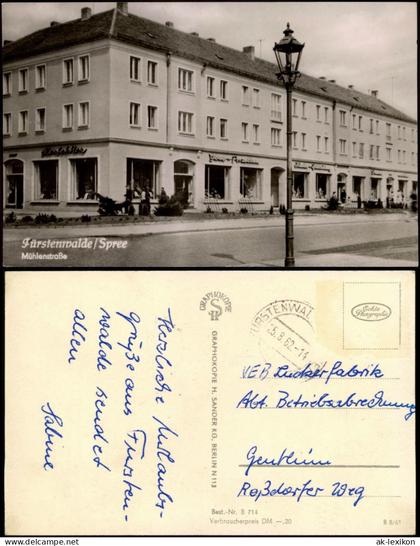 Fürstenwalde/Spree
Mühlenstraße
Herzliche Urlaubs-
grüße aus Fürsten-
walde sendet
allen
Sabine
GRAPHOKOPIE
GRAPHOKOPIE H. SANDER KG, BERLIN N 113
FÜRSTENWAL
25.8.62-14
Echte
Photographie
VEB Zuckerfabrik
Abt. Betriebsabrechnung
Genthin
Roßdorfer Weg
Best.-Nr. B 714
Verbraucherpreis DM —,20
B 8/61
www.ak-ansichtskarten.de
ak-lexikon